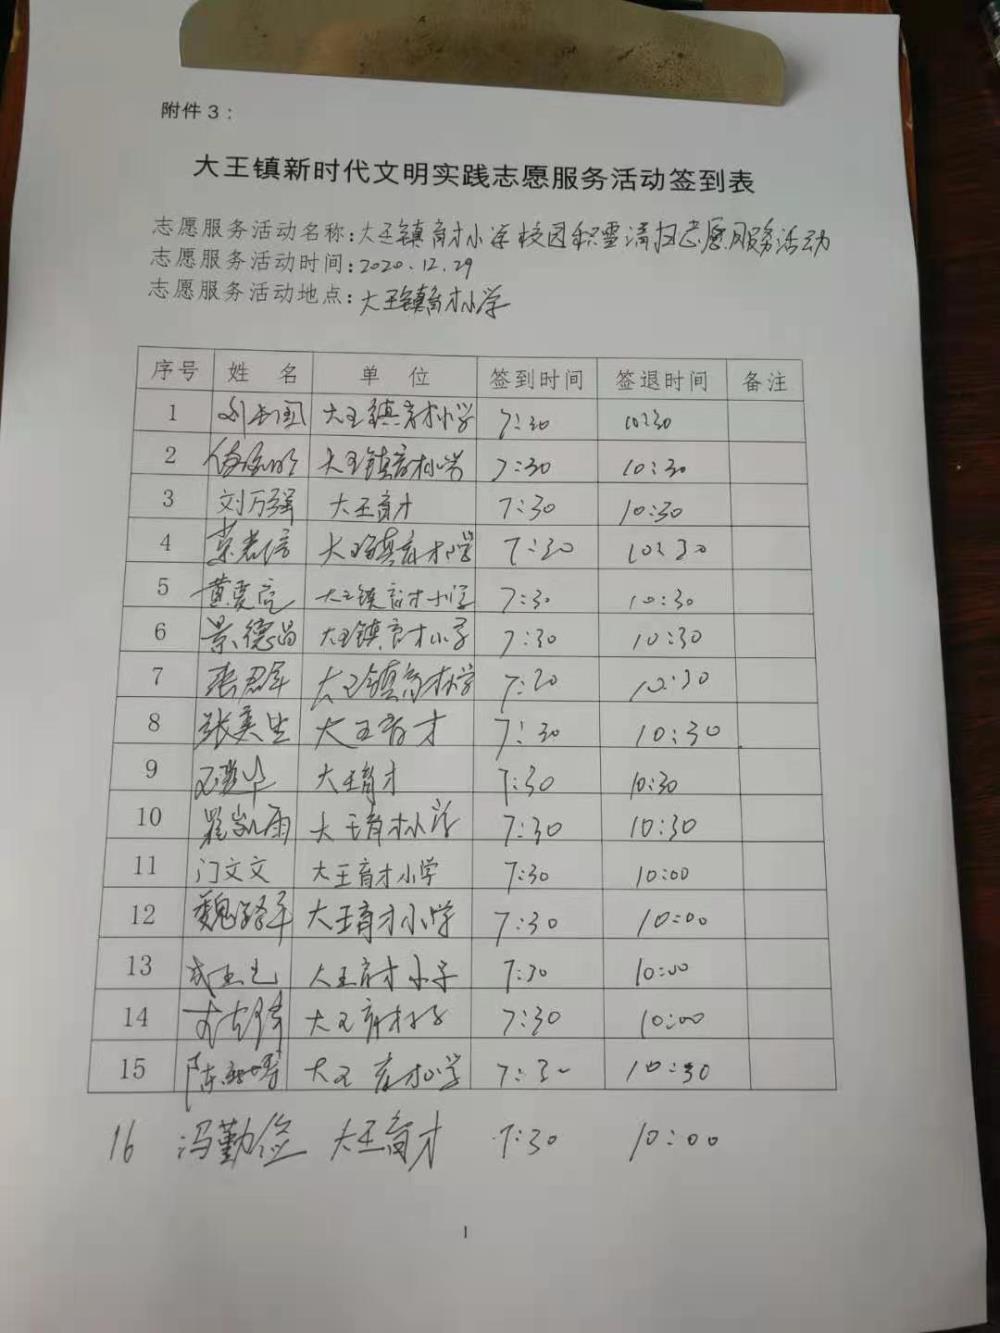 附件3：
大王镇新时代文明实践志愿服务活动签到表
志愿服务活动名称：大王镇育才小学校园积雪清扫志愿服务活动
志愿服务活动时间：2020.12.29
志愿服务活动地点：大王镇育才小学
序号 姓 名 单 位 签到时间 签退时间 备注
1 大王镇育才小学 7:30 10:30
2 大王镇育才小学 7:30 10:30
3 刘万强 大王育才 7:30 10:30
4 大王镇育才小学 7:30 10:30
5 大王镇育才小学 7:30 10:30
6 景德昌 大王镇育才小学 7:30 10:30
7 大王镇育才小学 7:30 10:30
8 大王育才 7:30 10:30
9 大王育才 7:30 10:30
10 大王育才小学 7:30 10:30
11 门文文 大王育才小学 7:30 10:00
12 大王育才小学 7:30 10:00
13 大王育才小学 7:30 10:00
14 大王育才小学 7:30 10:00
15 大王育才小学 7:30 10:30
16 冯勤俭 大王育才 7:30 10:00
1